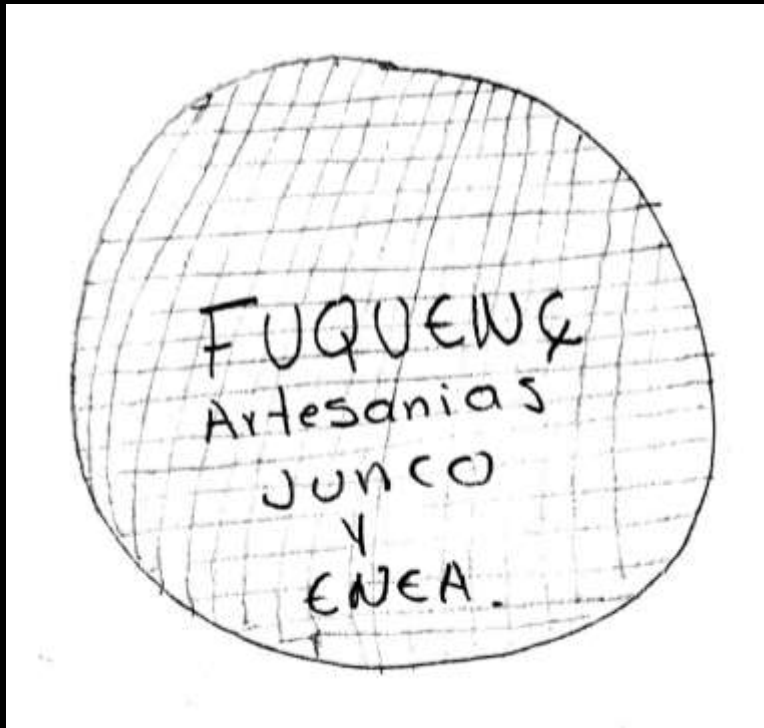 FUQUENE
Artesanias
Junco
y
ENEA.